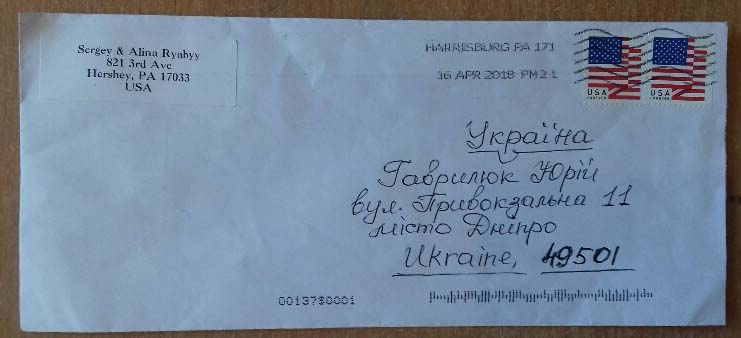 Sergey & Alina Ryabyy
821 3rd Ave
Hershey, PA 17033
USA
HARRISBURG PA 171
16 APR 2018 PM 2 L
USA FOREVER
USA FOREVER
Україна
Гаврилюк Юрій
вул. Привокзальна 11
місто Дніпро
Ukraine, 49501
00137$0001